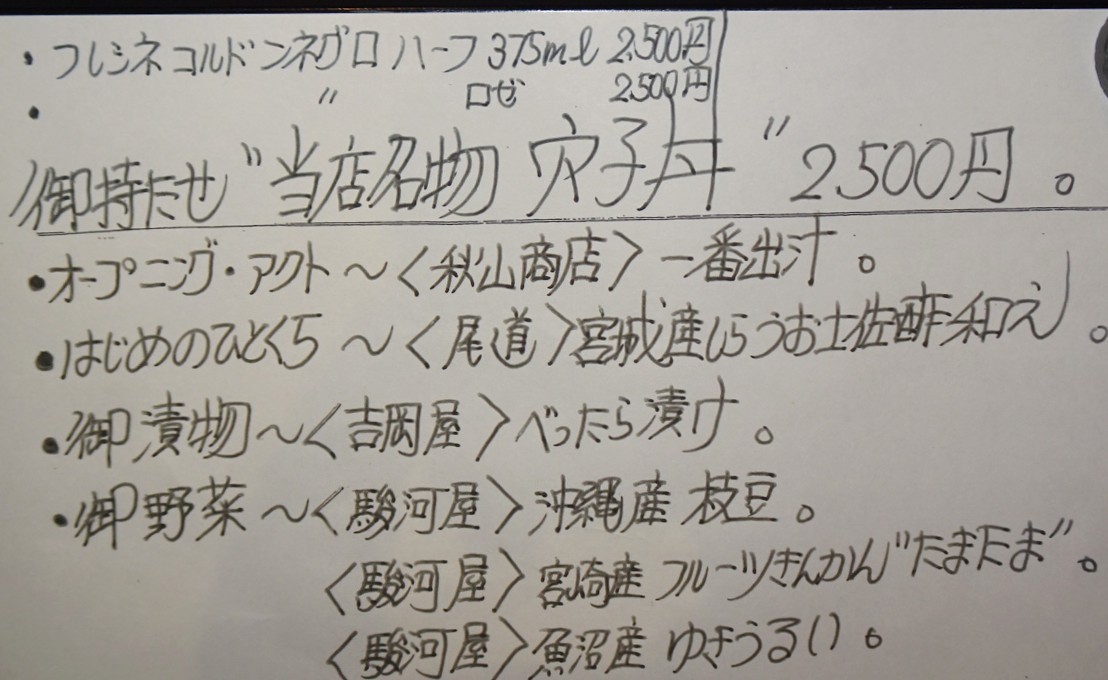 ・フレシネコルドンネグロ ハーフ 375ml 2.500円
・ 〃 ロゼ 2.500円
御持たせ "当店名物 穴子丼" 2.500円。
・オープニング・アクト〜〈秋山商店〉一番出汁。
・はじめのひとくち〜〈尾道〉宮城産しらうお土佐酢和え。
・御漬物〜〈吉岡屋〉べったら漬け。
・御野菜〜〈駿河屋〉沖縄産 枝豆。
〈駿河屋〉宮崎産 フルーツきんかん"たまたま"。
〈駿河屋〉魚沼産 ゆきうるい。